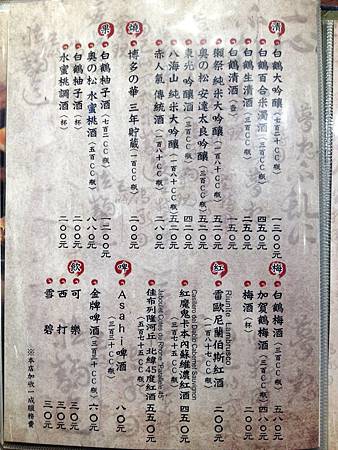 清
白鶴大吟釀(七百二十CC瓶) 一三〇〇元
白鶴百合米濁酒(三百CC瓶) 四五〇元
白鶴生清酒(三百CC瓶) 二五〇元
白鶴清酒(壺) 一五〇元
獺祭 純米大吟釀(一百八十CC瓶) 五二〇元
奧の松 安達太良吟釀(三百CC瓶) 五二〇元
東光 吟釀酒(三百CC瓶) 四二〇元
八海山 純米大吟釀(一百八十CC瓶) 五二〇元
赤人氣 傳統酒(一百八十CC瓶) 二五〇元
燒
博多の華 三年貯藏(一百CC瓶) 二〇〇元
果
白鶴柚子酒(七百二十CC瓶) 一二〇〇元
奧の松 水蜜桃酒(五百CC瓶) 八八〇元
白鶴柚子酒(杯) 二〇〇元
水蜜桃調酒(杯) 二〇〇元
梅
白鶴梅酒(三百CC瓶) 五八〇元
加賀鶴梅酒(三百CC瓶) 四八〇元
梅酒(杯) 二〇〇元
紅
Riunite Lambrusco
雷歐尼蘭伯斯紅酒(一百八十七CC瓶) 二〇〇元
紅魔鬼卡本內蘇維濃紅酒(三百七十五CC瓶) 四五〇元
佳布列隆河丘 北緯45度紅酒(七百五十CC瓶) 五五〇元
啤
Asahi啤酒 八〇元
金牌啤酒(三百三十CC瓶) 六〇元
飲
可樂 三〇元
西打 三〇元
雪碧 三〇元
※本店加收一成服務費